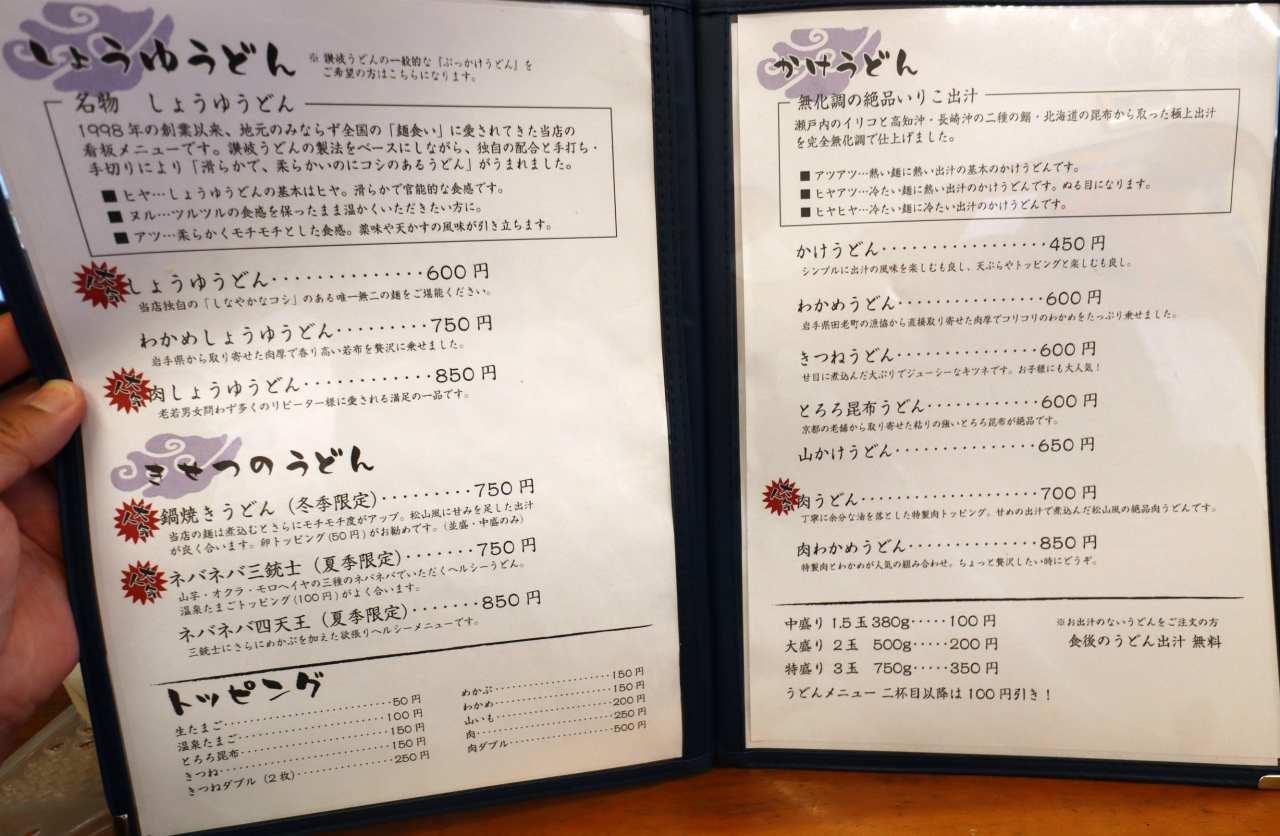 しょうゆうどん
※ 讃岐うどんの一般的な『ぶっかけうどん』を
ご希望の方はこちらになります。
名物　しょうゆうどん
1998年の創業以来、地元のみならず全国の「麺食い」に愛されてきた当店の
看板メニューです。讃岐うどんの製法をベースにしながら、独自の配合と手打ち・
手切りにより「滑らかで、柔らかいのにコシのあるうどん」がうまれました。
■ ヒヤ…しょうゆうどんの基本はヒヤ。滑らかで官能的な食感です。
■ ヌル…ツルツルの食感を保ったまま温かくいただきたい方に。
■ アツ…柔らかくモチモチとした食感。薬味や天かすの風味が引き立ちます。
大人気 しょうゆうどん・・・・・・・・・・・・・・・600円
当店独自の「しなやかなコシ」のある唯一無二の麺をご堪能ください。
わかめしょうゆうどん・・・・・・・・・750円
岩手県から取り寄せた肉厚で香り高い若布を贅沢に乗せました。
大人気 肉しょうゆうどん・・・・・・・・・・・・850円
老若男女問わず多くのリピーター様に愛される満足の一品です。
きせつのうどん
大人気 鍋焼きうどん（冬季限定）・・・・・・・・・750円
当店の麺は煮込むとさらにモチモチ度がアップ。松山風に甘みを足した出汁
が良く合います。卵トッピング(50円)がお勧めです。（並盛・中盛のみ）
大人気 ネバネバ三銃士（夏季限定）・・・・・・・750円
山芋・オクラ・モロヘイヤの三種のネバネバでいただくヘルシーうどん。
温泉たまごトッピング(100円)がよく合います。
ネバネバ四天王（夏季限定）・・・・・・・850円
三銃士にさらにめかぶを加えた欲張りヘルシーメニューです。
トッピング
生たまご・・・・・・・・・・・・・・・・・・50円
温泉たまご・・・・・・・・・・・・・・・・100円
とろろ昆布・・・・・・・・・・・・・・・・150円
きつね・・・・・・・・・・・・・・・・・・・・150円
きつねダブル（2枚）・・・・・・・・・・250円
めかぶ・・・・・・・・・・・・・・・・150円
わかめ・・・・・・・・・・・・・・・・150円
山いも・・・・・・・・・・・・・・・・200円
肉・・・・・・・・・・・・・・・・・・・・250円
肉ダブル・・・・・・・・・・・・・・500円
かけうどん
無化調の絶品いりこ出汁
瀬戸内のイリコと高知沖・長崎沖の二種の鰯・北海道の昆布から取った極上出汁
を完全無化調で仕上げました。
■ アツアツ…熱い麺に熱い出汁の基本のかけうどんです。
■ ヒヤアツ…冷たい麺に熱い出汁のかけうどんです。ぬる目になります。
■ ヒヤヒヤ…冷たい麺に冷たい出汁のかけうどんです。
かけうどん・・・・・・・・・・・・・・・・・450円
シンプルに出汁の風味を楽しむも良し、天ぷらやトッピングと楽しむも良し。
わかめうどん・・・・・・・・・・・・・・・600円
岩手県田老町の漁協から直接取り寄せた肉厚でコリコリのわかめをたっぷり乗せました。
きつねうどん・・・・・・・・・・・・・・・600円
甘目に煮込んだ大ぶりでジューシーなキツネです。お子様にも大人気！
とろろ昆布うどん・・・・・・・・・・・・600円
京都の老舗から取り寄せた粘りの強いとろろ昆布が絶品です。
山かけうどん・・・・・・・・・・・・・・・650円
大人気 肉うどん・・・・・・・・・・・・・・・・・・・700円
丁寧に余分な油を落とした特製肉トッピング。甘めの出汁で煮込んだ松山風の絶品肉うどんです。
肉わかめうどん・・・・・・・・・・・・・・850円
特製肉とわかめが人気の組み合わせ。ちょっと贅沢したい時にどうぞ。
中盛り 1.5玉 380g・・・・・100円
大盛り 2玉　500g・・・・・200円
特盛り 3玉　750g・・・・・350円
うどんメニュー 二杯目以降は 100円引き！
※お出汁のないうどんをご注文の方
食後のうどん出汁 無料